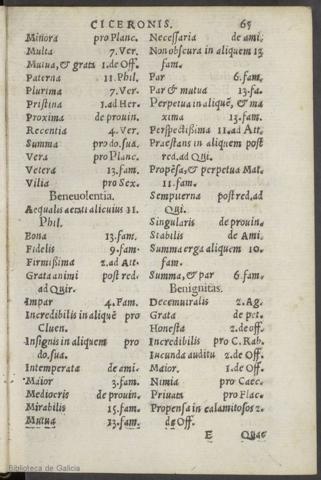 CICERONIS. 65
Minora pro Planc.
Multa 7. Ver.
Mutua, & grata 1. de Off.
Paterna 11. Phil.
Plurima 7. Ver.
Pristina 1. ad Her.
Proxima de prouin.
Recentia 4. Ver.
Summa pro do. sua.
Vera pro Planc.
Vetera 13. fam.
Vilia pro Sex.
Beneuolentia.
Aequalis aetati alicuius 11.
Phil.
Bona 13. fam.
Fidelis 9. fam.
Firmißima 2. ad Att.
Grata animi post red.
ad Quir.
Impar 4. Fam.
Incredibilis in aliquē pro
Cluen.
Insignis in aliquem pro
do. sua.
Intemperata de ami.
Maior 3. fam.
Mediocris de prouin.
Mirabilis 15. fam.
Mutua 13. fam.
Necessaria de ami.
Non obscura in aliquem 13.
fam.
Par 6. fam.
Par & mutua 13. fa.
Perpetua in aliquē, & ma
xima 13. fam.
Perspectißima 11. ad Att.
Praestans in aliquem post
red. ad Qui.
Propēsa, & perpetua Mat.
11. fam.
Sempiterna post red. ad
Qui.
Singularis de prouin.
Stabilis de Ami.
Summa erga aliquem 10.
fam.
Summa, & par 6. fam.
Benignitas.
Decemuiralis 2. Ag.
Grata de pet.
Honesta 2. de off.
Incredibilis pro C. Rab.
Iucunda auditu 2. de Off.
Maior. 1. de Off.
Nimia pro Caec.
Priuati pro Flac.
Propensa in calamitosos 2.
de Off.
E Quae
Biblioteca de Galicia